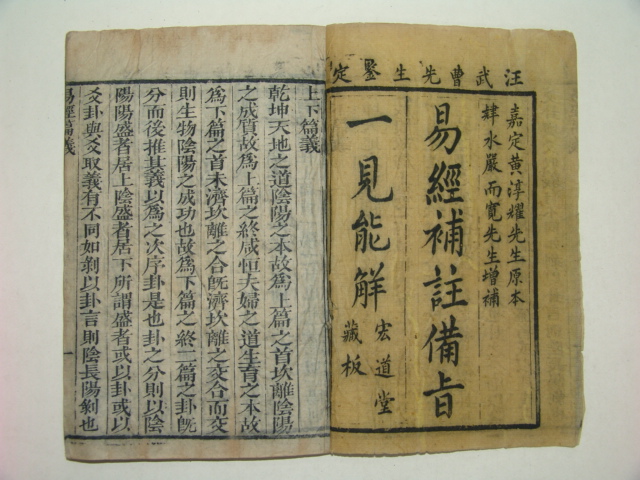 汪武曹先生鑒定
嘉定黃淳耀先生原本
肆水嚴而寬先生增補
易經補註備旨
一見能解
宏道堂
藏板
上下篇義
乾坤天地之道陰陽之本故為上篇之首坎離陰陽
之成質故為上篇之終咸恒夫婦之道生育之本故
為下篇之首未濟坎離之合既濟坎離之交合而交
則生物陰陽之成功也故為下篇之終二篇之卦既
分而後推其義以為之次序卦是也卦之分則以陰
陽陽盛者居上陰盛者居下所謂盛者或以卦或以
爻卦與爻取義有不同如剝以卦言則陰長陽剝也
易經篇義
一